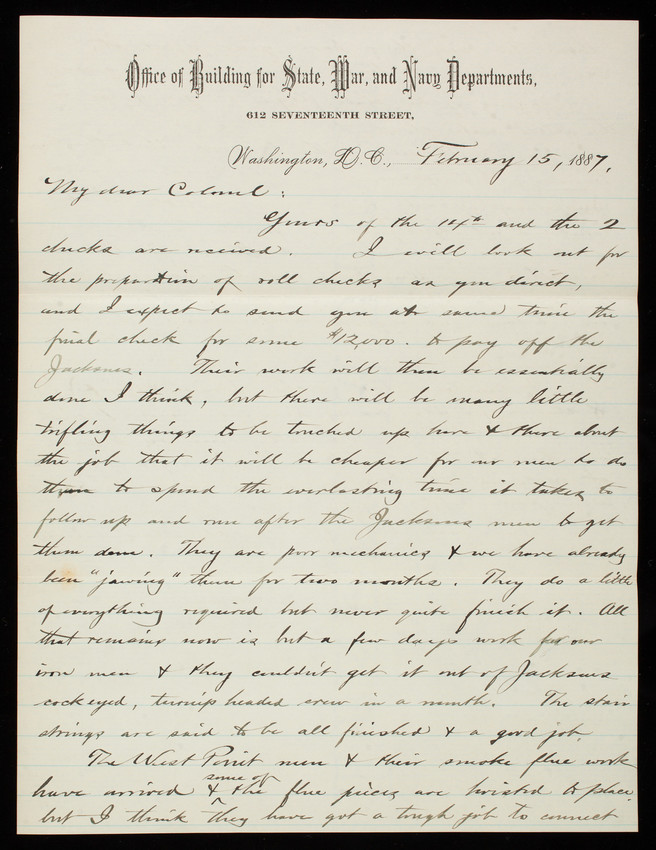 Office of Building for State, War, and Navy Departments,
612 SEVENTEENTH STREET,
Washington, D.C., February 15, 1887.
My dear Colonel:
Yours of the 14th and the 2
checks are received. I will look out for
the preparation of roll checks as you direct,
and I expect to send you at same time the
final check for some $12,000. to pay off the
Jacksons. Their work will then be essentially
done I think, but there will be many little
trifling things to be touched up here & there about
the job that it will be cheaper for our men to do
than to spend the everlasting time it takes to
follow up and run after the Jacksons men to get
them done. They are poor mechanics & we have already
been "jawing" them for two months. They do a little
of everything required but never quite finish it. All
that remains now is but a few days work for our
iron men & they couldn't get it out of Jacksons
cockeyed, turnip headed crew in a month. The stair
strings are said to be all finished & a good job.
The West Point men & their smoke flue work
have arrived & some of the flue pieces are hoisted to place
but I think they have got a tough job to connect